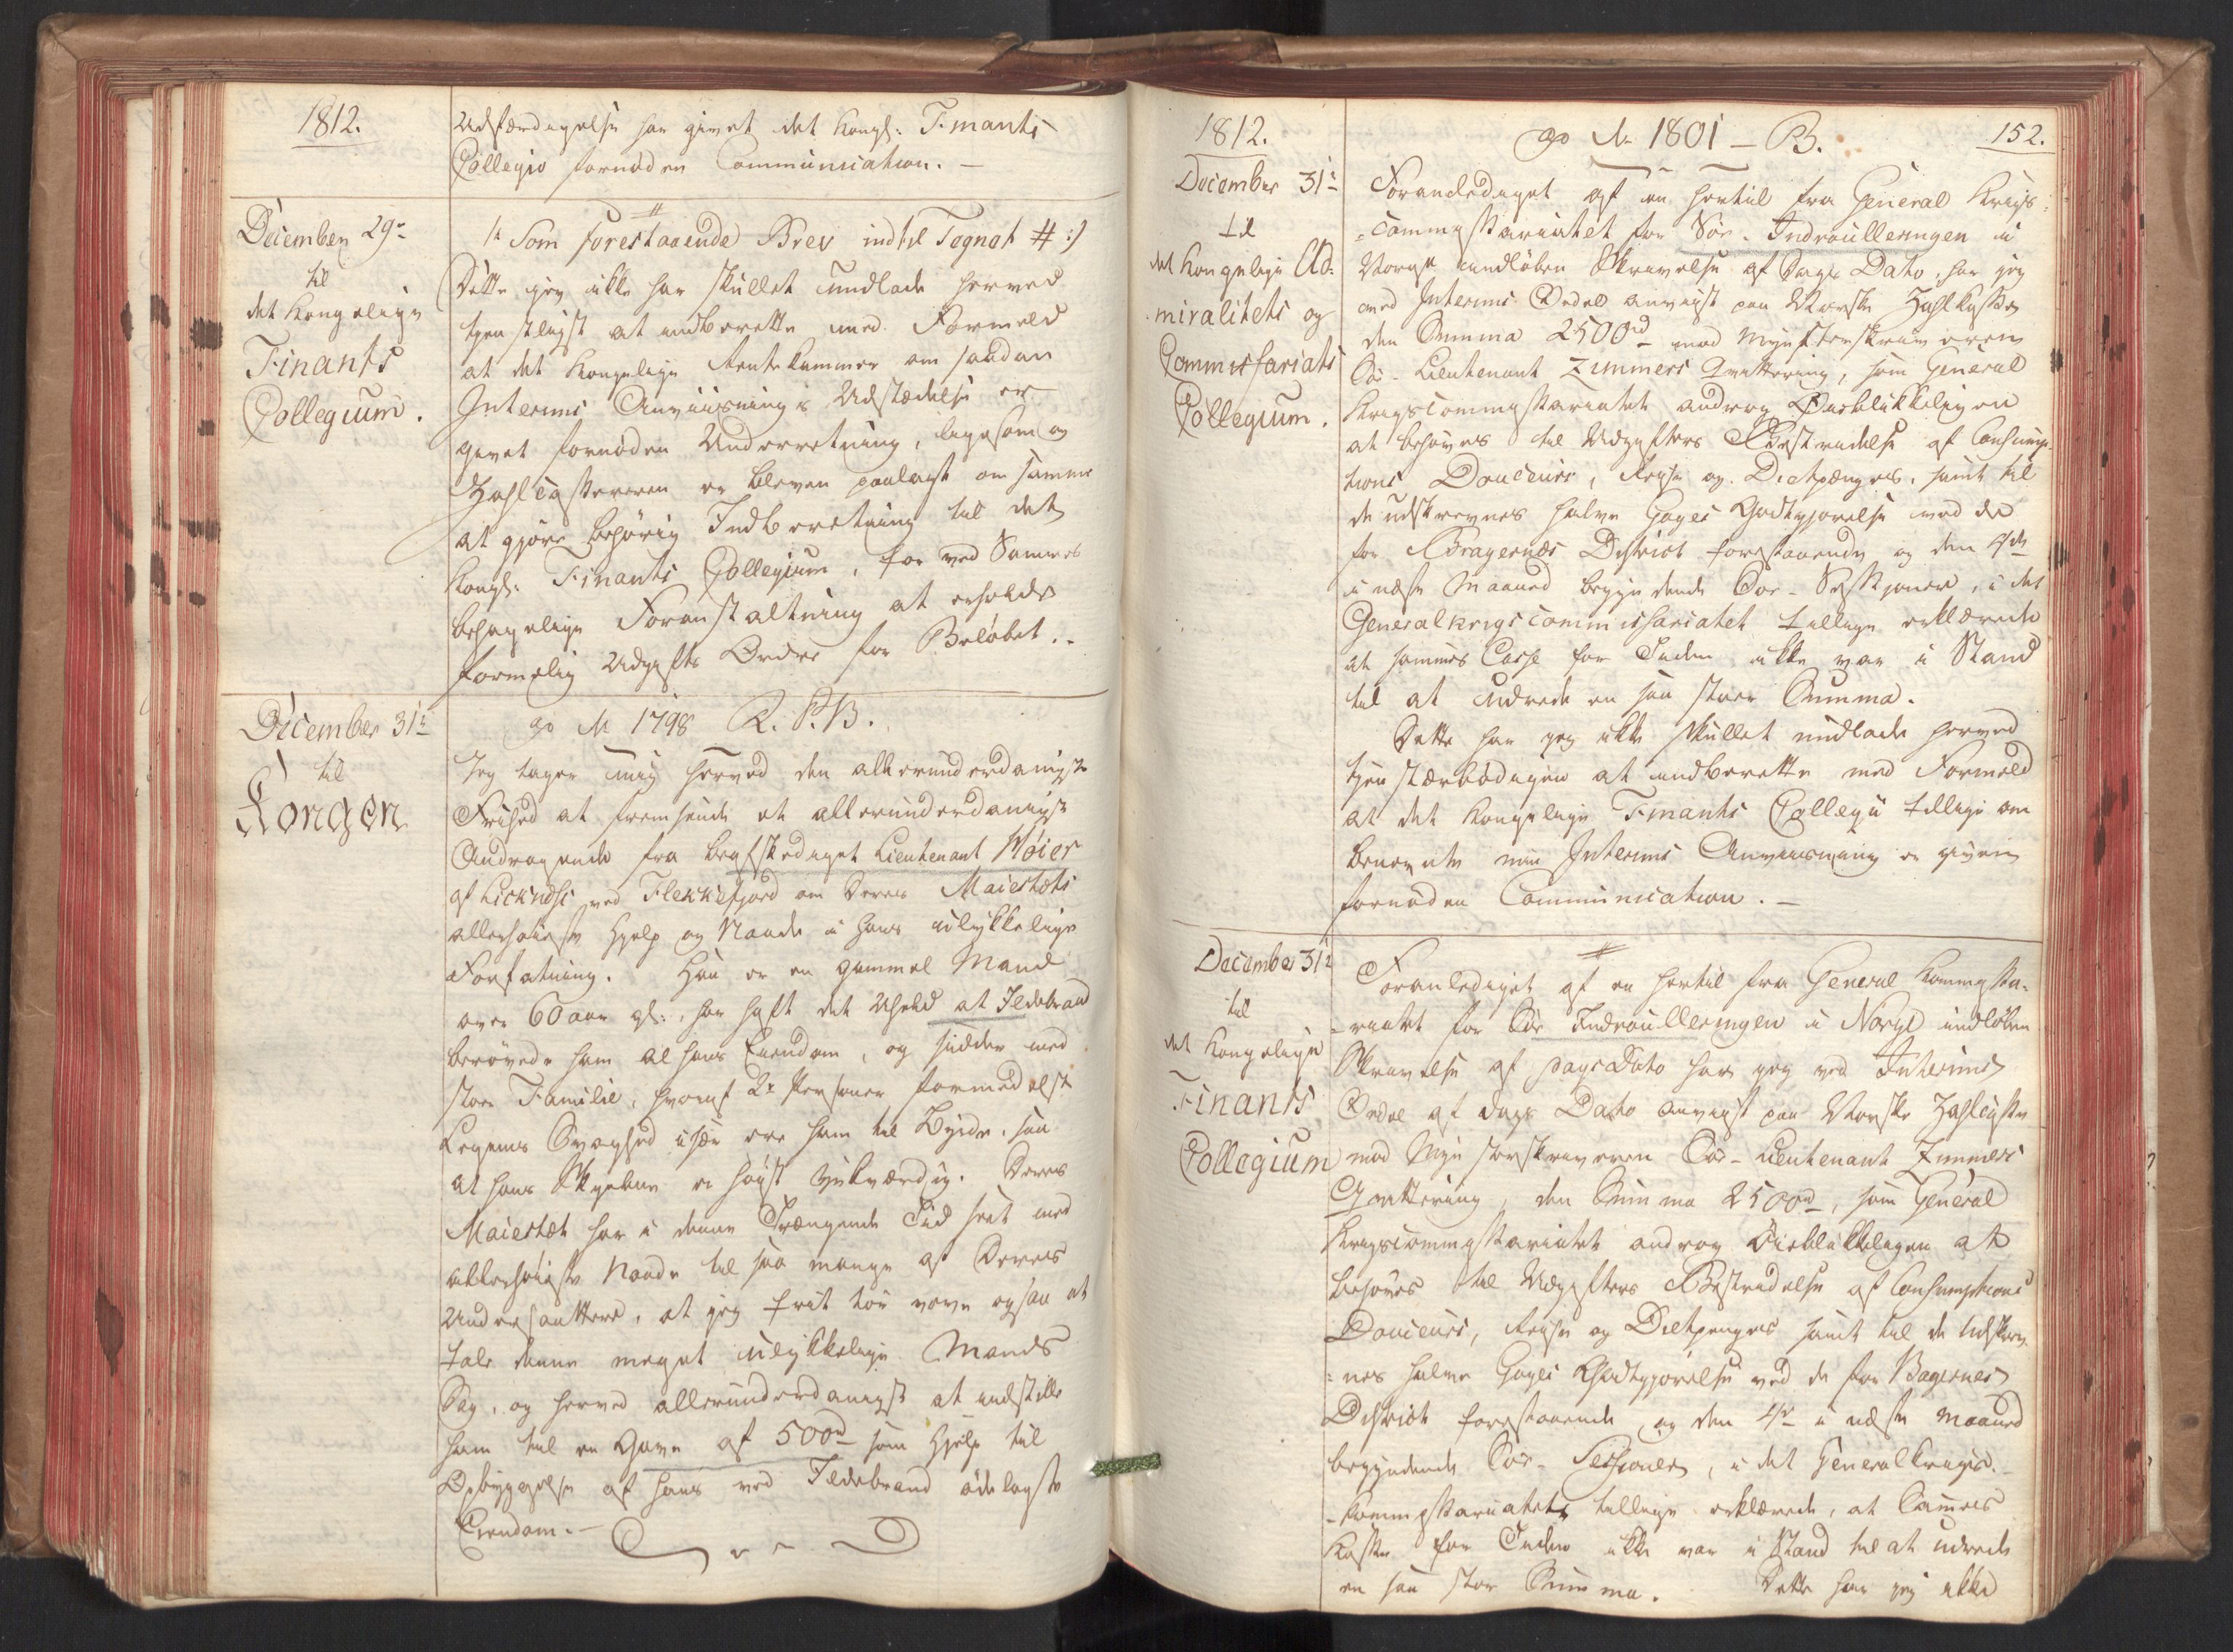 1812.
Udfærdigelse har givet det Kongl: Finants
Collegio fornøden Communication. —
December 29de
til
det Kongelige
Finants
Collegium.
/: Som forestaaende Brev indtil Tegnet # :/
Dette jeg ikke har skullet undlade herved
tjenstligst at indberette med Formeld
at det Kongelige Rentekammer om saadan
Interims Anviisnings Udstædelse er
givet fornøden Underretning, ligesom og
Zahlcassereren er bleven paalagt om samme
at gjøre behørig Indberetning til det
Kongl: Finants Collegium, for ved Sammes
behagelige Foranstaltning at erholde
formelig Udgifts Ordre for Beløbet. -
December 31te
til
Kongen
go No 1798 R. P. B.
Jeg tager mig herved den allerunderdanigste
Friehed at fremsende et allerunderdanigst
Andragende fra beafskediget Lieutenant Høier
af Licknæss ved Flekkefjord om Deres Maiestæts
allerhøieste Hjelp og Naade i hans ulykkelige
Forfatning. Han er en gammel Mand
over 60 aar gl:, har haft det Uheld at Ildebrand
berøvede ham al hans Eiendom, og sidder med
stor Familie, hvoraf 2de Personer formedelst
Legems Svaghed især ere ham til Byrde, saa
at hans Skjebne er høist ynkværdig. Deres
Maiestæt har i denne Trængende Tid seet med
allerhøieste Naade til saa mange af Deres
Undersaattere, at jeg frit tør vove ogsaa at
tale denne meget ulykkelige Mands
Sag, og herved allerunderdanigst at indstille
ham til en Gave af 500rd som Hjelp til
Opbyggelse af hans ved Ildebrand ødelagte
Eiendom. —
1812.
152.
December 31te
til
det Kongelige Ad:
miralitets og
Commissariats
Collegium.
go No 1801 — B.
Foranlediget af en hertil fra General Krigs:
=commissariatet for Søe-Indroulleringen i
Norge indløben Skrivelse af Dags Dato, har jeg
ved Interims Ordre anvist paa Norske Zahlkasse
den Summa 2500rd mod Mynsterskriveren
Søe-Lieutenant Zimmers Qvittering, som General
Krigscommissariatet androg Øieblikkeligen
at behøves til Udgifters Bestridelse af Consump-
tions Douceurs, Reise og Dietpenges, samt til
de udskrevnes halve Gages Godtgjørelse ved de
for Bragernæs District forestaaende og den 4de
i næste Maaned begyndende Søe-Sessioner, i det
Generalkrigscommissariatet tillige erklærede
at sammes Casse for Tiden ikke var i Stand
til at udrede en saa stor Summa.
Dette har jeg ikke skullet undlade herved
tjenstærbødigen at indberette med Formeld
at det Kongelige Finants Collegii tillige om
benævnte min Interims Anviisning er given
fornøden Communication. —
December 31te
til
det Kongelige
Finants
Collegium
Foranlediget af en hertil fra General Kommissa-
=riatet for Søe Indroulleringen i Norge indløben
Skrivelse af Dags Dato har jeg ved Interims
Ordre af dags Dato anvist paa Norske Zahlcasse
mod Mynsterskriveren Søe-Lieutenant Zimmers
Qvittering, den Summa 2500rd, som General
Krigscommissariatet androg Øieblikkeligen at
behøves til Udgifters Bestridelse af Consumptions
Douceurs, Reise og Dietpenges samt til de Udskrev-
=nes halve Gages Godtgjørelse ved de for Bragernes
District forestaaende og den 4de i næste Maaned
begyndende Søe-Sessioner, i det Generalkrigs-
-kommissariatet tillige erklærede, at Sammes
Kasse for Tiden ikke var i Stand til at udrede
en saa stor Summa. Dette har jeg ikke